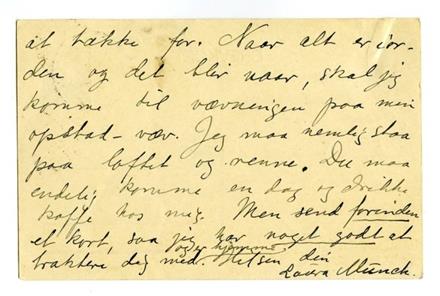 at tække for. Naar alt er i or-
den og det blir vaar, skal jeg
komme til vævningen paa min
opstad-væv. Jeg maa nemlig staa
paa loftet og renne. Du maa
endelig komme en dag og drikke
kaffe hos mig. Men send forinden
et kort, saa jeg har noget godt at
og er hjemme
traktere dig med. Hilsen din
Laura Munch.